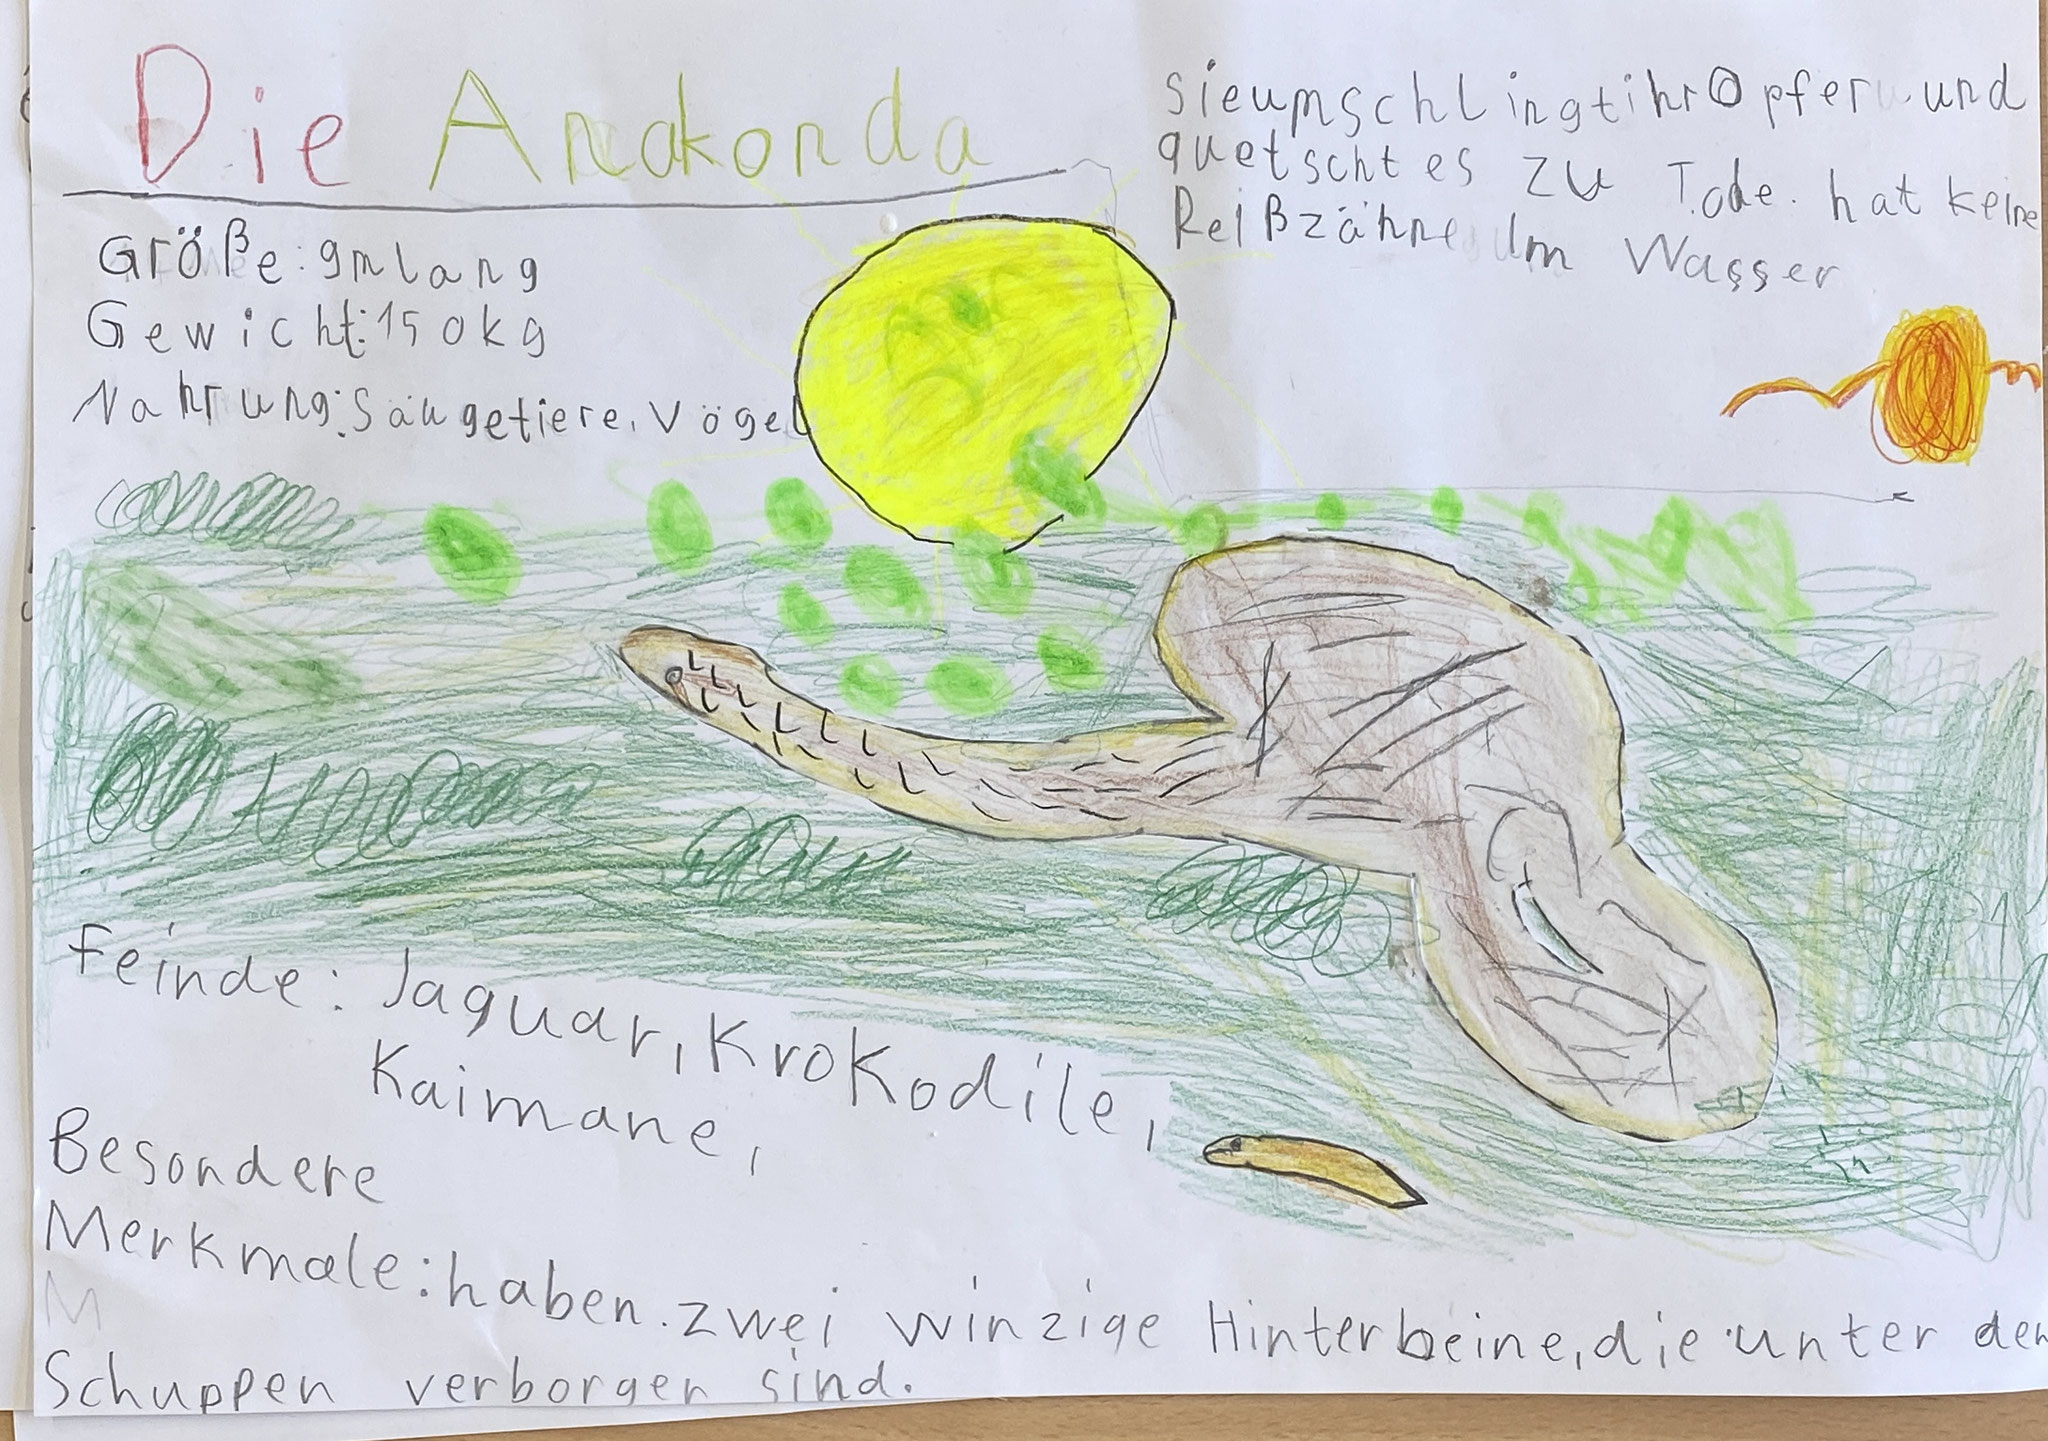 Die Anakonda
Größe: 9m lang
Gewicht: 150kg
Nahrung: Säugetiere, Vögel
sie umschlingt ihr Opfer und
quetscht es zu Tode. hat keine
Reißzähne Im Wasser
Feinde: Jaguar, Krokodile,
Kaimane,
Besondere
Merkmale: haben zwei winzige Hinterbeine, die unter den
M
Schuppen verborgen sind.